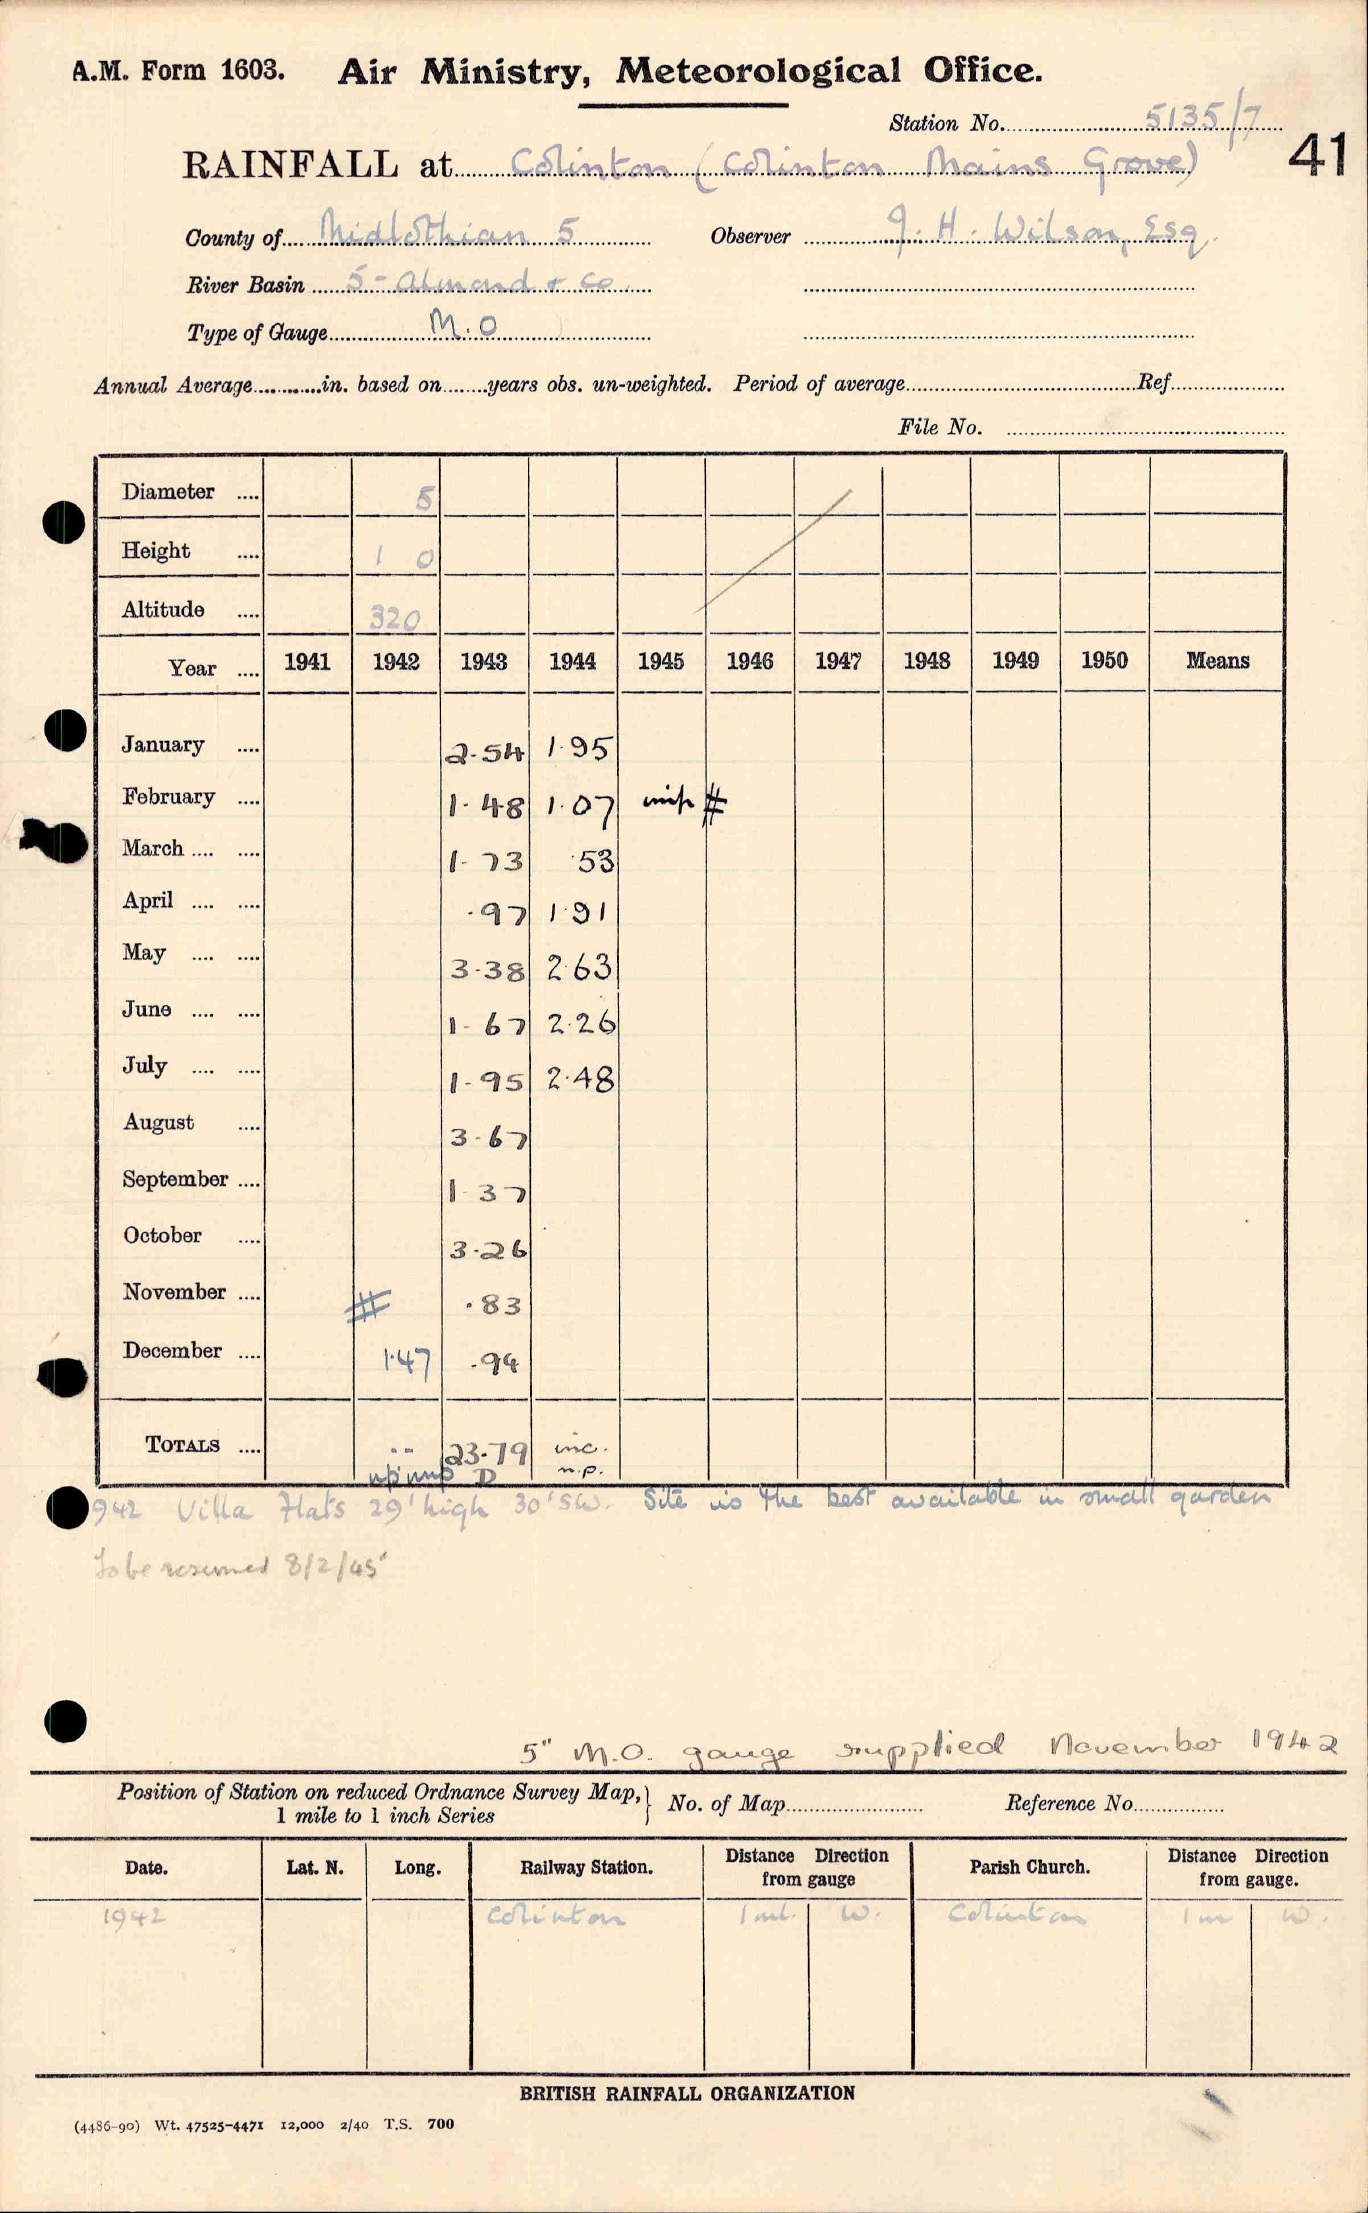 A.M. Form 1603. Air Ministry, Meteorological Office.
Station No. 5135/7
41
RAINFALL at Colinton (Colinton Mains Grove)
County of Midlothian 5 Observer J. H. Wilson, Esq.
River Basin 5 - Almond & Co
Type of Gauge M.O
Annual Average in. based on years obs. un-weighted. Period of average Ref
File No.
Diameter 5
Height 1 0
Altitude 320
Year 1941 1942 1943 1944 1945 1946 1947 1948 1949 1950 Means
January 2.54 1.95
February 1.48 1.07 #
March 1.73 .53
April .97 1.91
May 3.38 2.63
June 1.67 2.26
July 1.95 2.48
August 3.67
September 1.37
October 3.26
November # .83
December 1.47 .94
TOTALS .. 23.79 inc.
D n.p.
942 Villa Flats 29' high 30' SW. Site is the best available in small garden
To be resumed 8/2/45
5" M.O. gauge supplied November 1942
Position of Station on reduced Ordnance Survey Map,} No. of Map Reference No.
1 mile to 1 inch Series
Date. Lat. N. Long. Railway Station. Distance from gauge Direction Parish Church. Distance from gauge. Direction
1942 Colinton 1 ml. W. Colinton 1 m W.
BRITISH RAINFALL ORGANIZATION
(4486-90) Wt. 47525-4471 12,000 2/40 T.S. 700